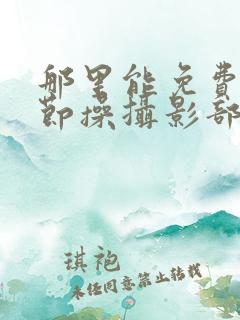 那里能免费
节操摄影部
琪袍
未经同意禁止转载